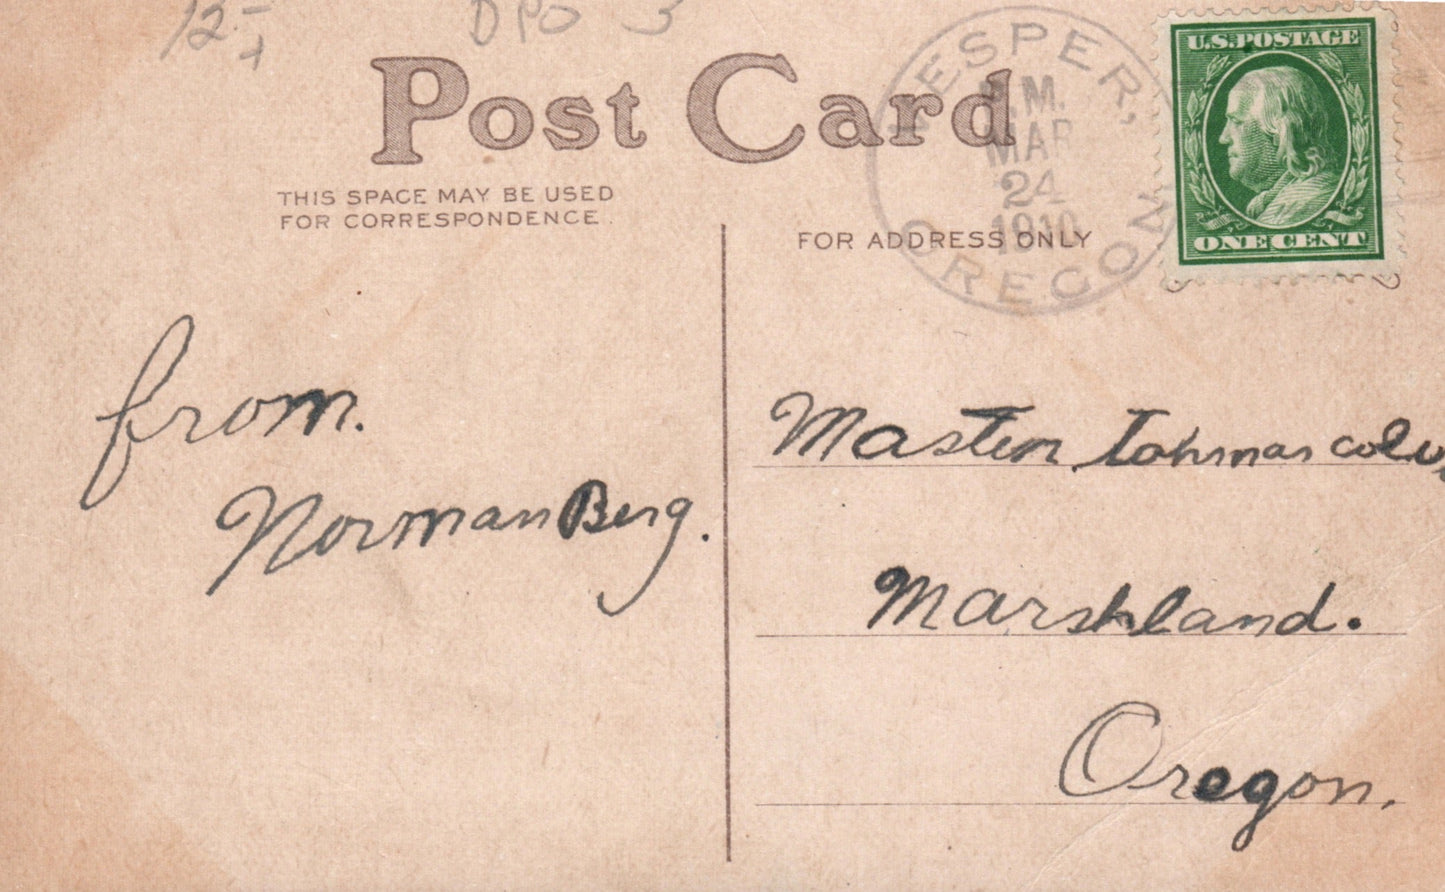 12-
DPO 3
Post Card
THIS SPACE MAY BE USED
FOR CORRESPONDENCE.
FOR ADDRESS ONLY
U.S.POSTAGE
ONE CENT
VESPER,
MAR
24
1910
OREGON
from.
Norman Berg.
Mastin
Marshland.
Oregon.